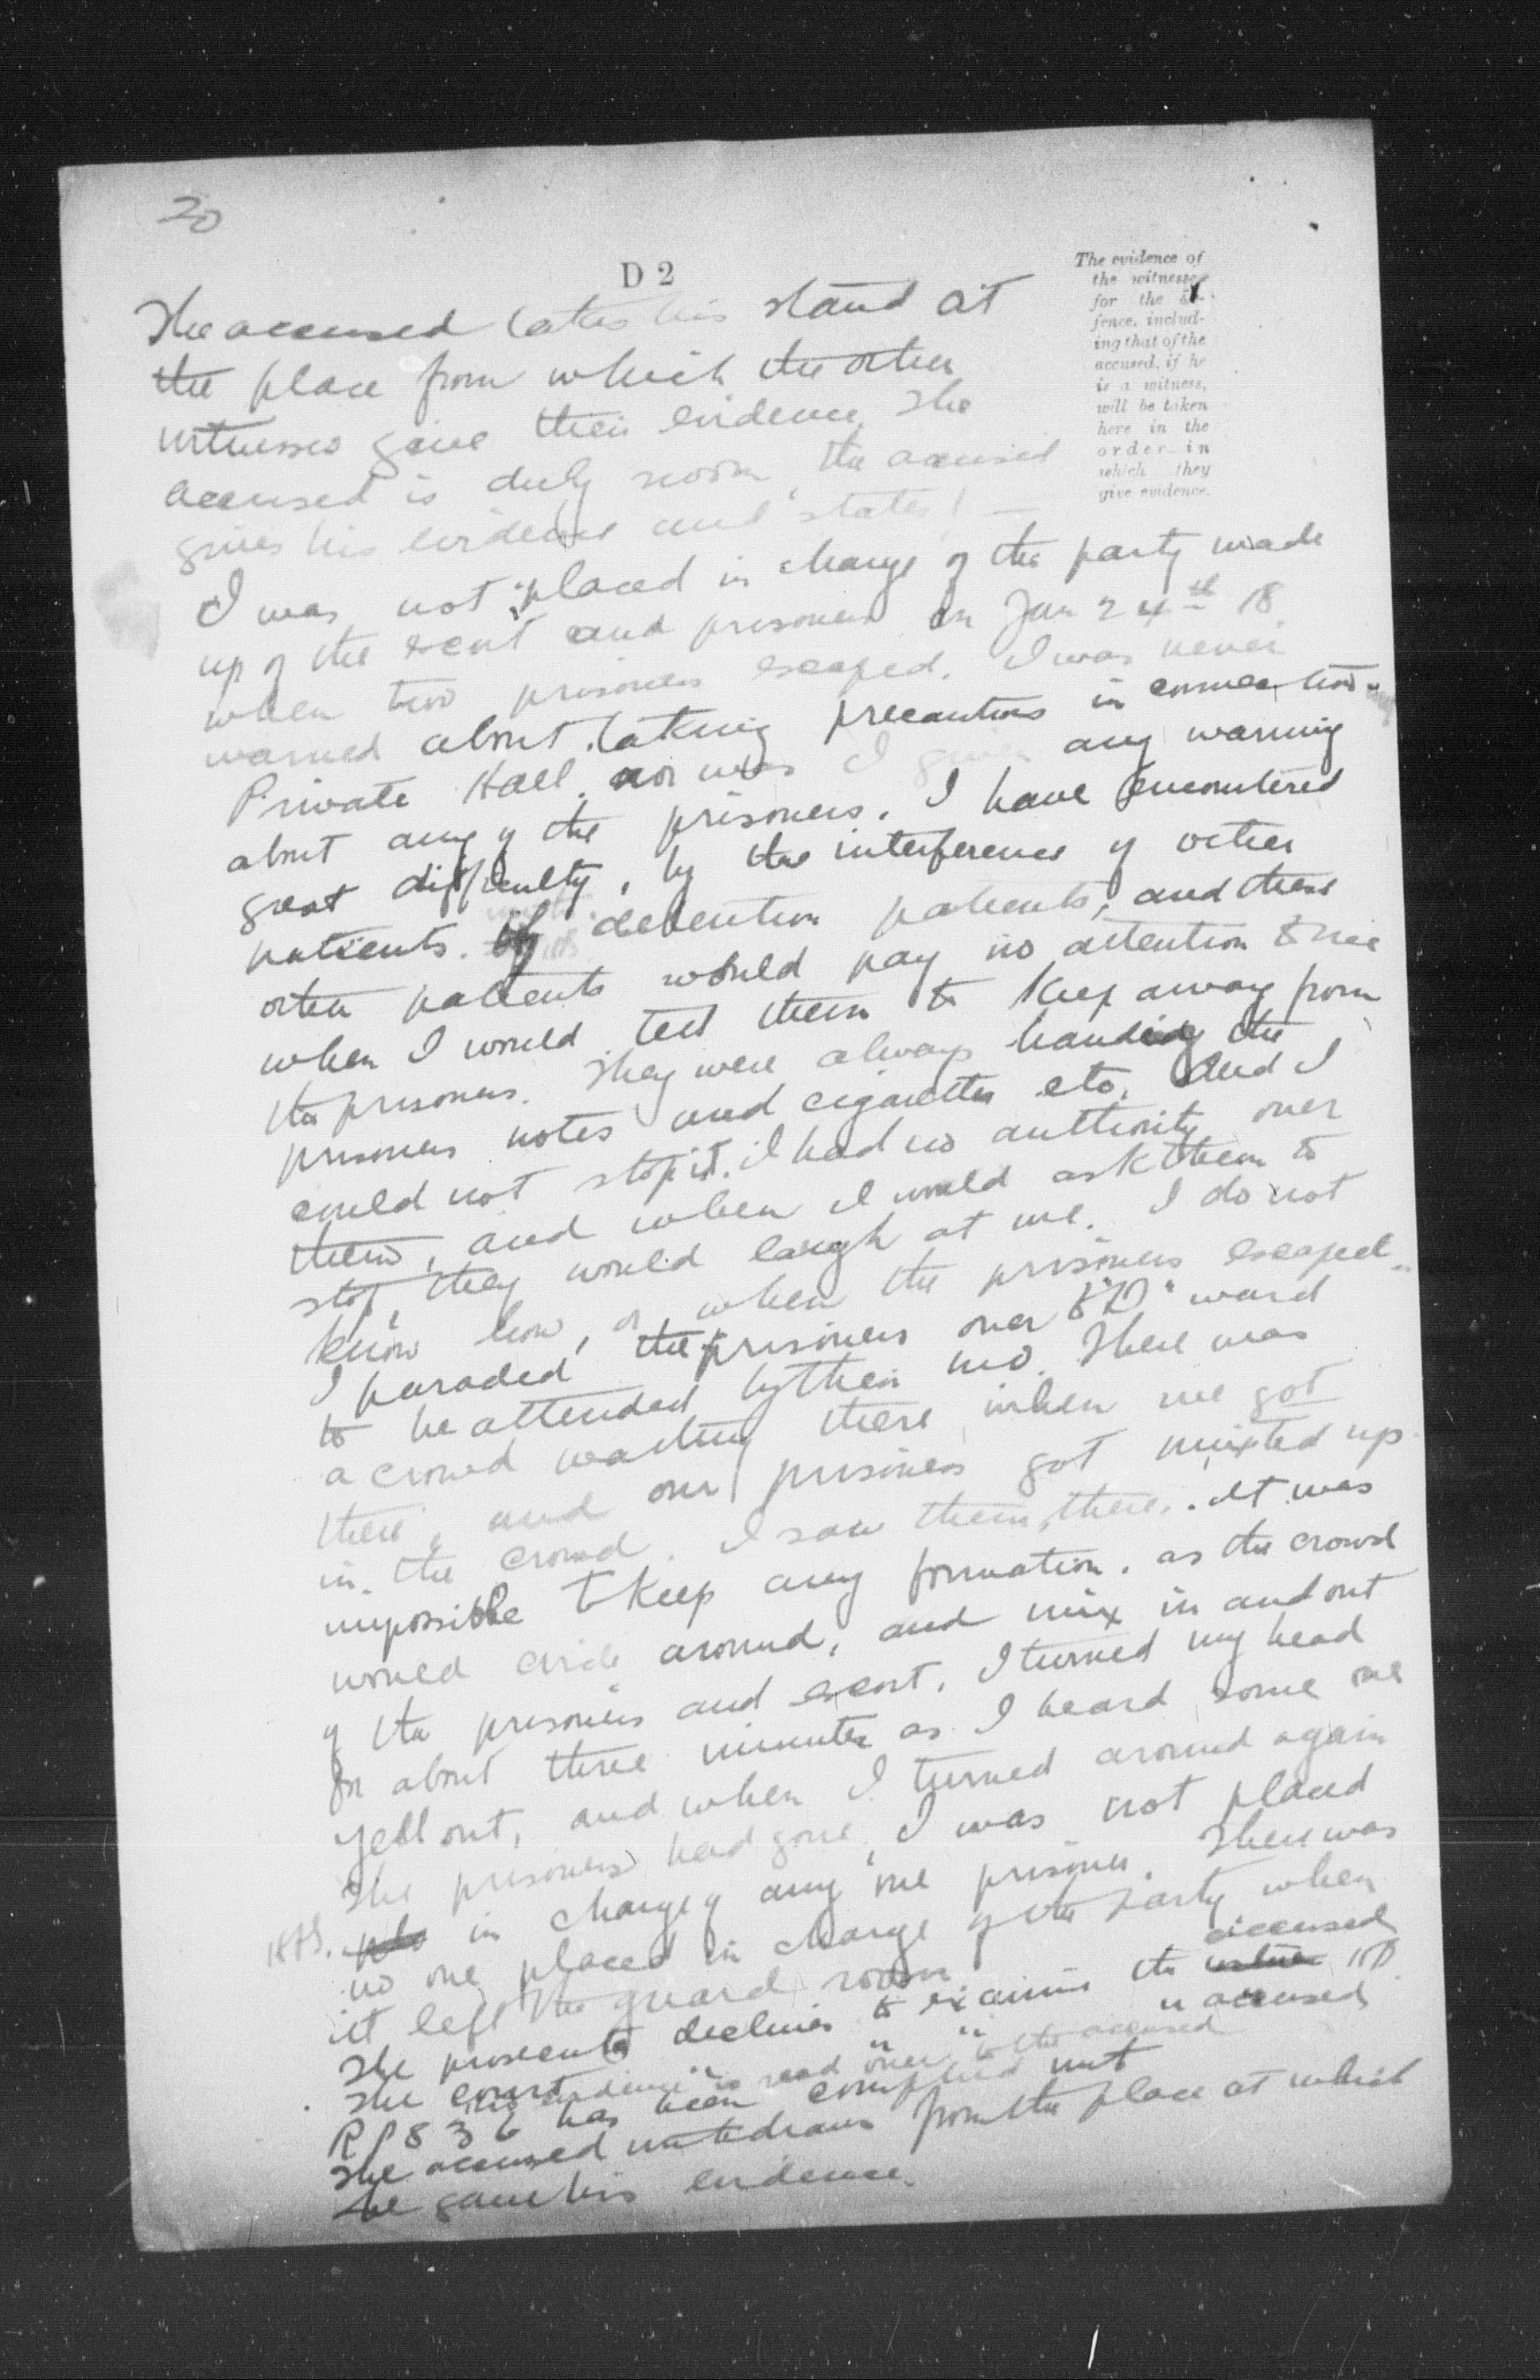 20
D 2
The evidence of
the witnesses
for the
fence, includ-
ing that of the
accused, if he
is a witness,
will be taken
here in the
order in
which they
give evidence.
The accused takes his stand at
the place from which the other
witnesses gave their evidence. The
accused is duly sworn, the accused
gives his evidence and states! —
I was not placed in charge of the party made
up of the escort and prisoners on Jan 24th 18
when two prisoners escaped. I was never
warned about taking precautions in connection
Private Hall. nor was I given any warning
about any of the prisoners. I have encountered
great difficulty, by the interference of other
patients. with detention patients, and these
other patients would pay no attention to me
when I would tell them to keep away from
the prisoners. They were always handing the
prisoners notes and cigarettes etc. and I
could not stop it. I had no authority over
them, and when I would ask them to
stop, they would laugh at me. I do not
know how, or when the prisoners escaped.
I paraded the prisoners over to "D" ward
to be attended by their M.O. There was
a crowd waiting there when we got
there, and our prisoners got mixted up
in the crowd. I saw them there. It was
impossible to keep any formation. as the crowd
would circle around, and mix in and out
of the prisoners and escort. I turned my head
for about three minutes as I heard some one
yell out, and when I turned around again
the prisoners had gone, I was not placed
in charge of any one prisoner. There was
no one placed in charge of the party when
it left the guard room
accused
The prosecutor declines to examine the witness
The court " " " " accused
His evidence is read over to the accused
RP 83 b has been complied with
The accused withdraws from the place at which
he gave his evidence.